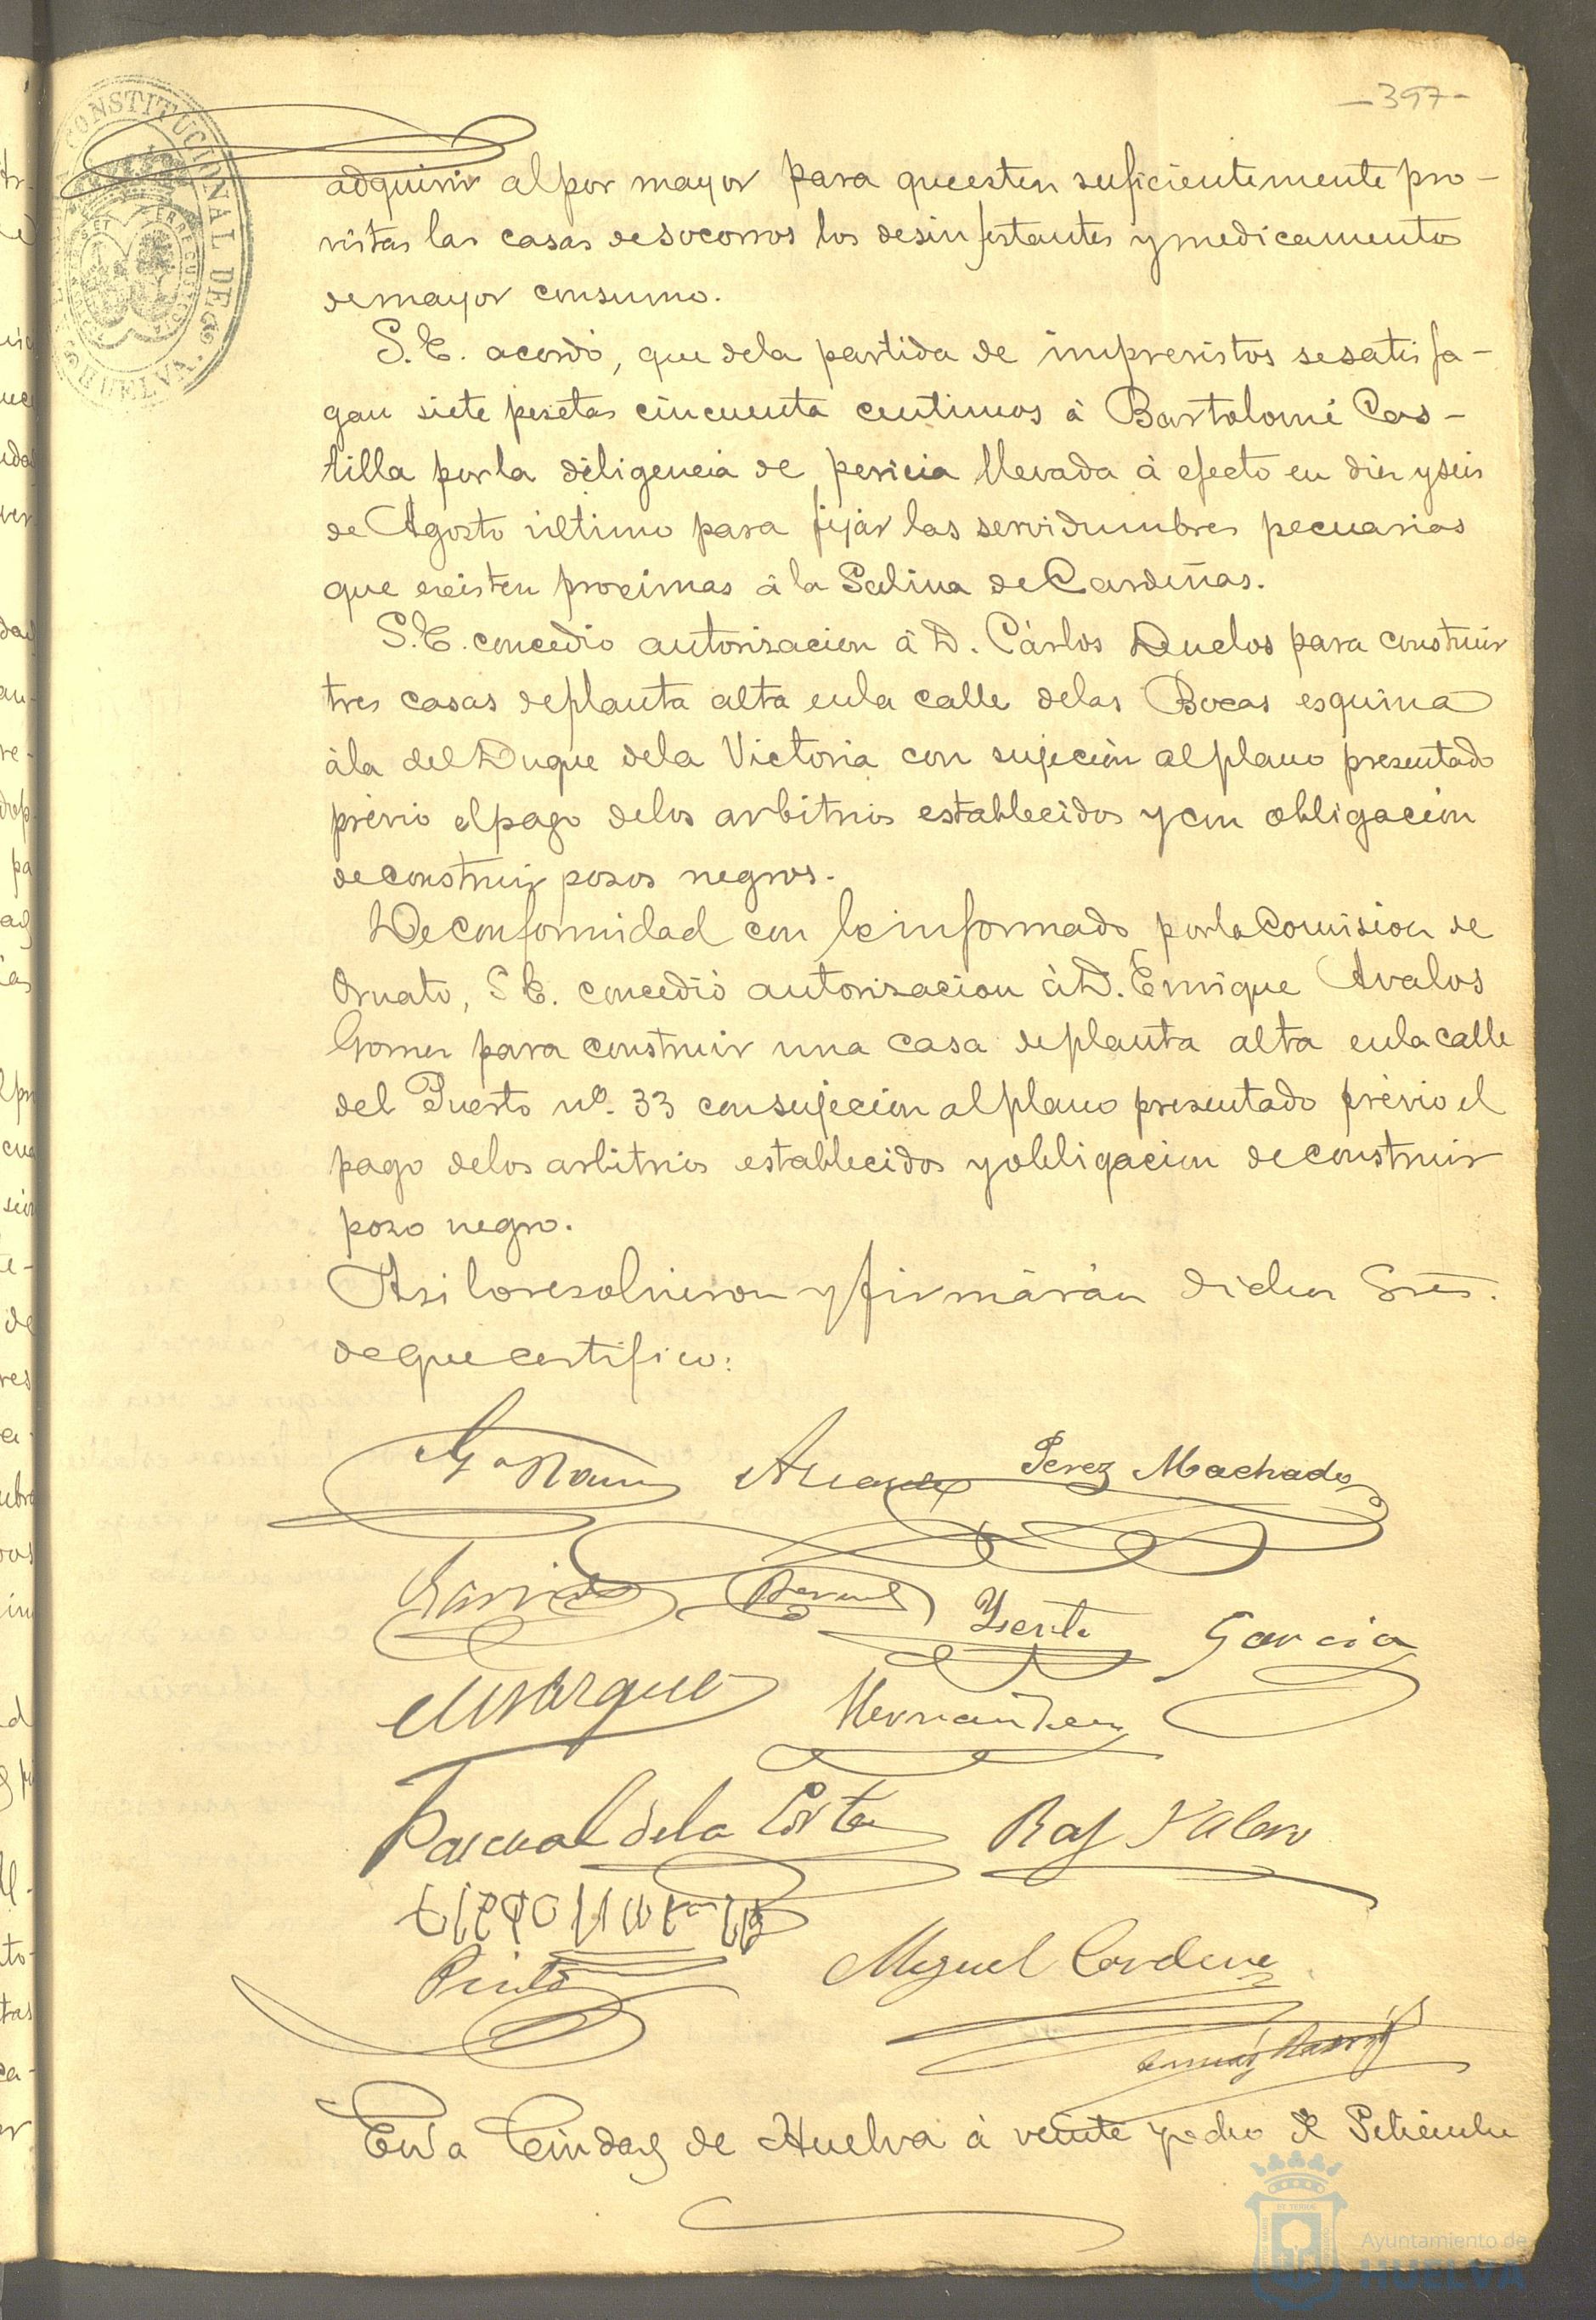 -397-
CONSTITUCIONAL DE
HUELVA
adquirir al por mayor para que esten suficientemente pro-
vistas las casas de socorros los desinfestantes y medicamentos
de mayor consumo.
S. E. acordó, que de la partida de imprevistos se satisfa-
gan siete pesetas cincuenta centimos á Bartolomé Cas-
tilla por la diligencia de pericia llevada á efecto en diez y seis
de Agosto último para fijar las servidumbres pecuarias
que existen proximas á la Salina de Cardeñas.
S. E. concedio autorizacion á D. Cárlos Duclos para construir
tres casas de planta alta en la calle de las Bocas esquina
á la del Duque de la Victoria con sujeción al plano presentado
prévio el pago de los arbitrios establecidos y con obligación
de construir pozos negros.
De conformidad con lo informado por la Comision de
Ornato, S E. concedió autorizacion á D. Enrique Avalos
Gomez para construir una casa de planta alta en la calle
del Puerto nº. 33 con sujecion al plano presentado prévio el
pago de los arbitrios establecidos y obligacion de construir
pozo negro.
Asi lo resolvieron y firmárán dichos Sres.
de que certifico:
Perez Machado
Garcia
Marquez
Hernandez
Pascual de la Corte
Raf Valero
Pinto
Miguel Cardenez
En la Ciudad de Huelva á veinte y ocho de Setiembre
Ayuntamiento de
HUELVA